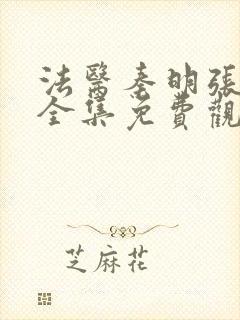 法醫秦明張
全集免費觀
芝麻花